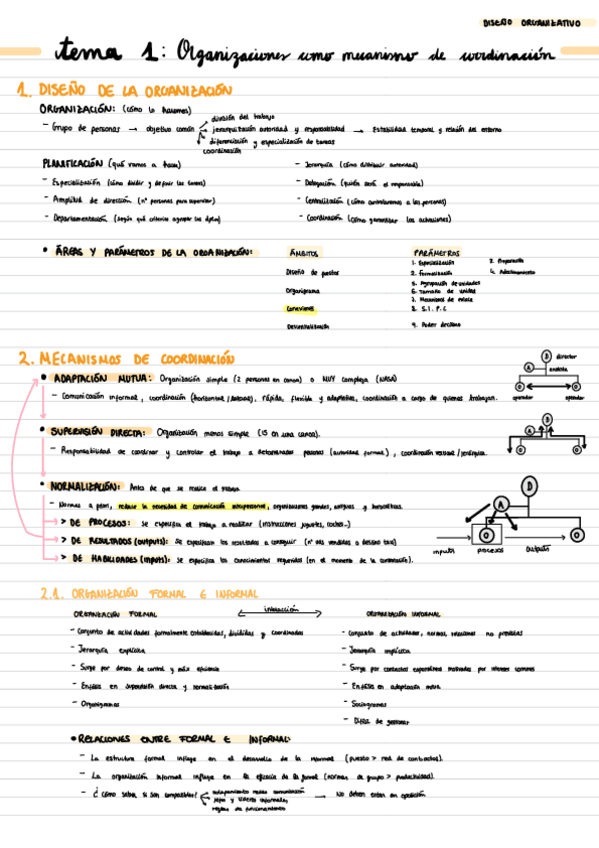 DISEÑO ORGANIZATIVO
tema 1: Organizaciones como mecanismo de coordinación
1. DISEÑO DE LA ORGANIZACIÓN
ORGANIZACIÓN: (cómo lo hacemos)
división del trabajo
- Grupo de personas → objetivo común jerarquización autoridad y responsabilidad → Estabilidad temporal y relación del entorno
diferenciación y especialización de tareas
coordinación
PLANIFICACIÓN (qué vamos a hacer)
- Jerarquía (cómo distribuir autoridad)
- Especialización (cómo dividir y definir las tareas)
- Delegación (quién será el responsable)
- Amplitud de dirección (nº personas para supervisar)
- Centralización (cómo controlaremos a las personas)
- Departamentación (según qué criterio agrupar los dptos)
- Coordinación (cómo garantizar las actuaciones)
• ÁREAS Y PARÁMETROS DE LA ORGANIZACIÓN:
ÁMBITOS
PARÁMETROS
Diseño de puestos
1. Especialización
2. Formalización
3. Preparación
4. Adoctrinamiento
Organigrama
5. Agrupación de unidades
6. Tamaño de unidad
Conexiones
7. Mecanismos de enlace
8. S.I. P.C
Descentralización
9. Poder decisorio
2. MECANISMOS DE COORDINACIÓN
• ADAPTACIÓN MUTUA: Organización simple (2 personas en canoa) o MUY compleja (NASA)
- Comunicación informal, coordinación (horizontal/lateral), rápida, flexible y adaptativa, coordinación a cargo de quienes trabajan.
D director
A analista
operador operador
• SUPERVISIÓN DIRECTA: Organización menos simple (15 en una canoa).
- Responsabilidad de coordinar y controlar el trabajo a determinadas personas (autoridad formal), coordinación vertical/jerárquica.
D
A
• NORMALIZACIÓN: Antes de que se realice el trabajo
- Normas a priori, reduce la necesidad de comunicación interpersonal, organizaciones grandes, antiguas y burocráticas.
> DE PROCESOS: Se especifica el trabajo a realizar (instrucciones juguetes, coches...)
> DE RESULTADOS (outputs): Se especifican los resultados a conseguir (nº uds vendidas o destino taxi)
> DE HABILIDADES (inputs): Se especifica los conocimientos requeridos (en el momento de la contratación).
D
A
inputs procesos outputs
2.1. ORGANIZACIÓN FORMAL E INFORMAL
ORGANIZACIÓN FORMAL interacción ORGANIZACIÓN INFORMAL
- Conjunto de actividades formalmente establecidas, divididas y coordinadas
- Conjunto de actividades, normas, relaciones no previstas
- Jerarquía explícita
- Jerarquía implícita
- Surge por deseo de control y más eficiente
- Surge por contactos espontáneos motivados por intereses comunes
- Énfasis en supervisión directa y normalización
- Énfasis en adaptación mutua
- Organigramas
- Sociogramas
- Difícil de gestionar
• RELACIONES ENTRE FORMAL E INFORMAL:
- La estructura formal influye en el desarrollo de la informal (puesto > red de contactos).
- La organización informal influye en la eficacia de la formal (normas de grupo > productividad).
- ¿Cómo saber si son compatibles? → No deben entrar en oposición
jefes y líderes informales,